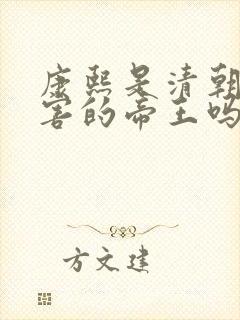 康熙是清朝
害的帝王吗
方文建